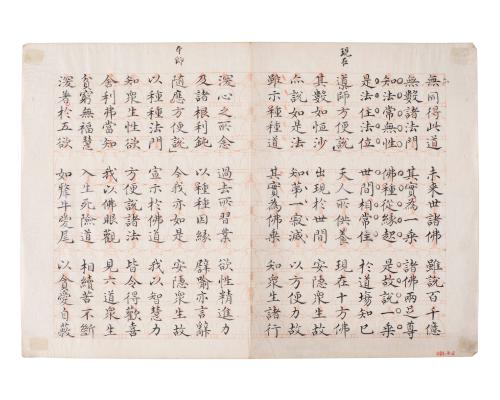 現在
無同得此道 未来世諸佛 雖説百千億
無數諸法門 其實為一乘 諸佛兩足尊
知法常無性 佛種從緣起 是故説一乘
是法住法位 世間相常住 於道場知已
導師方便説 天人所供養 現在十方佛
其數如恒沙 出現於世間 安隱衆生故
亦説如是法 知第一寂滅 以方便力故
雖示種種道 其實為佛乘 知衆生諸行
深心之所念 過去所習業 欲性精進力
及諸根利鈍 以種種因緣 譬喻亦言辭
隨應方便説 今我亦如是 安隱衆生故
以種種法門 宣示於佛道 我以智慧力
知衆生性欲 方便説諸法 皆令得歡喜
舍利佛當知 我以佛眼觀 見六道衆生
貧窮無福慧 入生死險道 相續苦不斷
深著於五欲 如犛牛愛尾 以貪愛自蔽